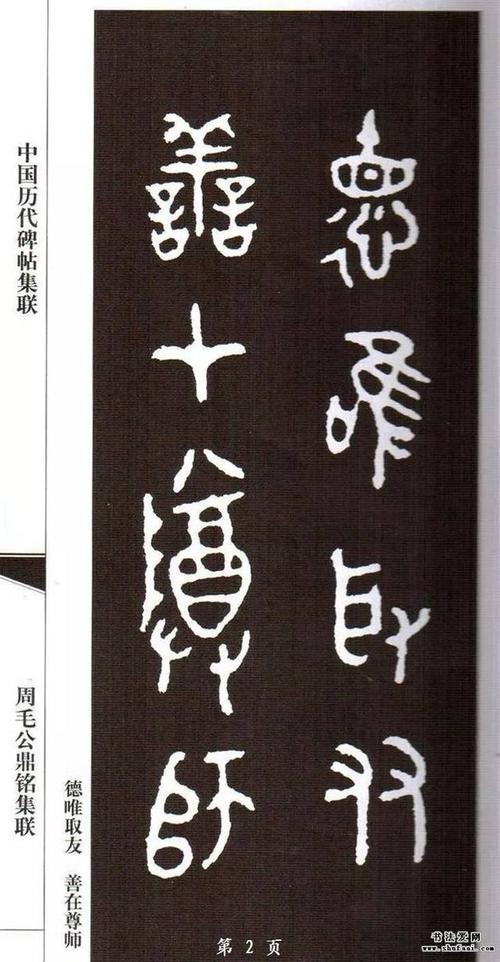 德唯取友
善在尊师
中国历代碑帖集联
周毛公鼎铭集联
德唯取友 善在尊师
第 2 页
书法爱网
www.shufaai.com